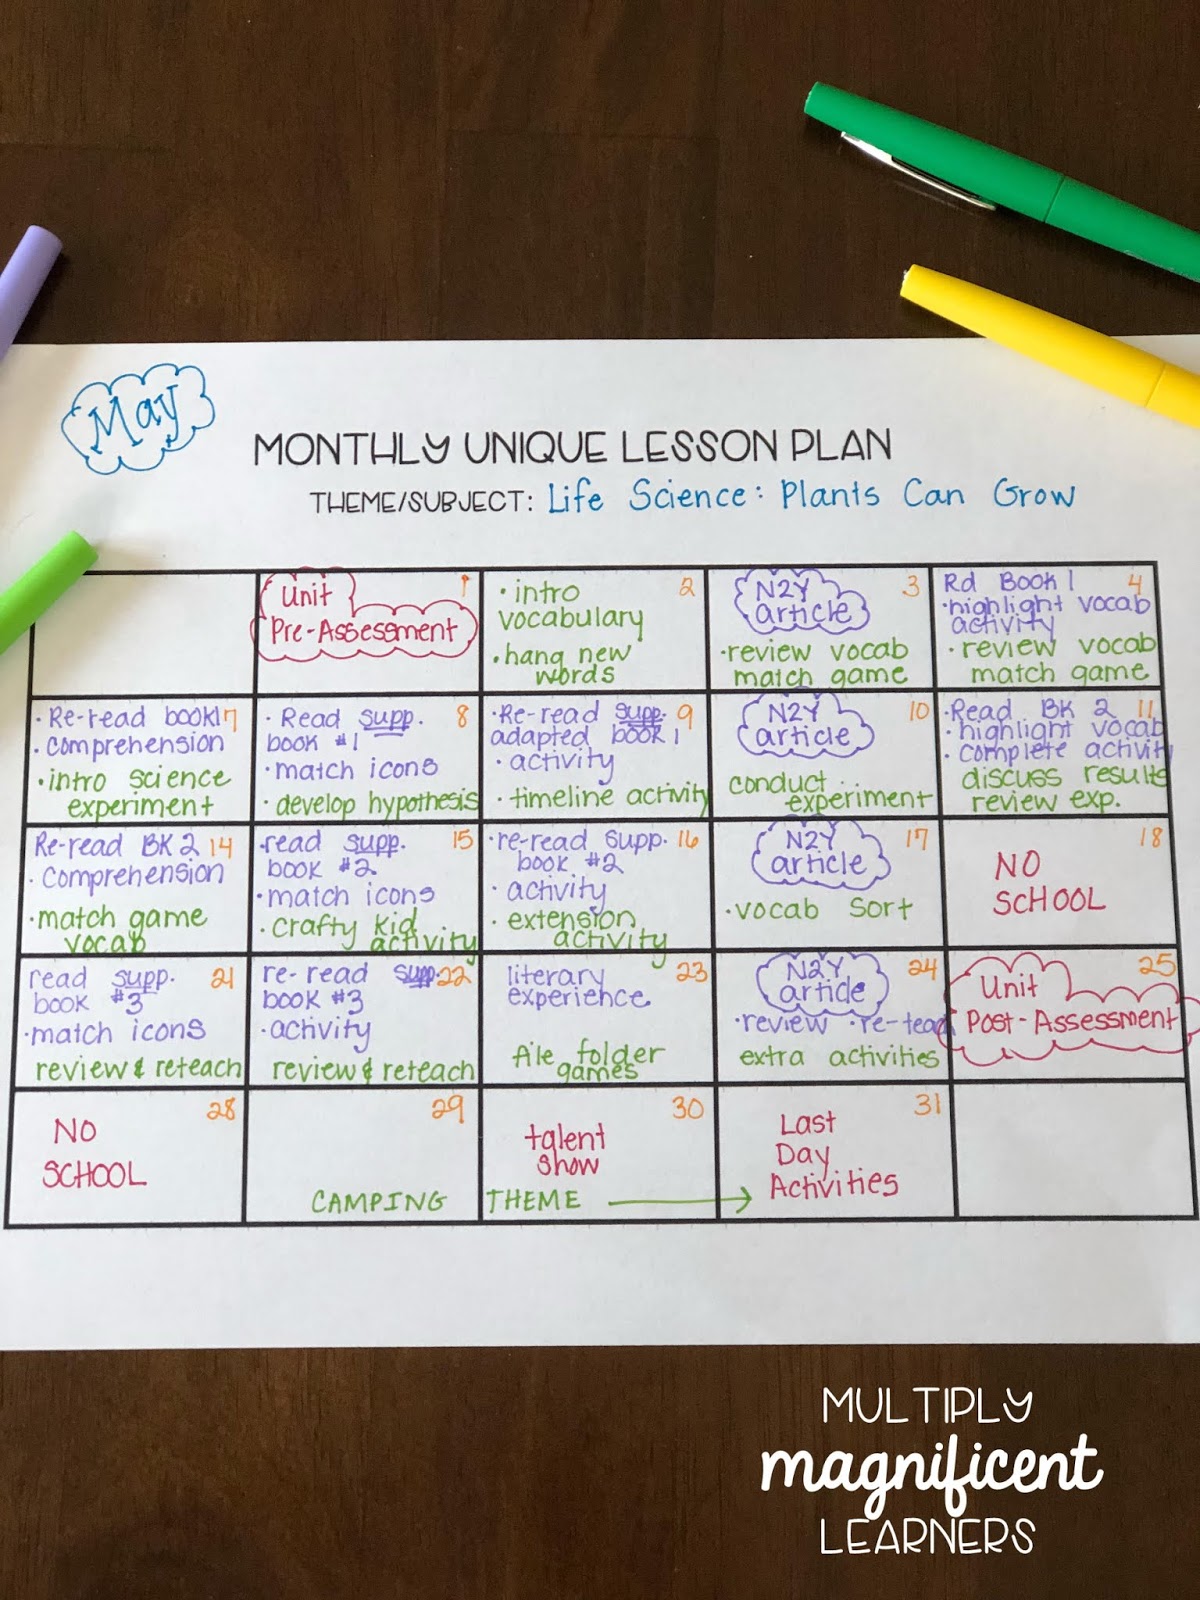 May
MONTHLY UNIQUE LESSON PLAN
THEME/SUBJECT: Life Science: Plants Can Grow
1
Unit
Pre-Assessment
2
• intro
vocabulary
• hang new
words
3
N2Y
article
• review vocab
match game
4
Rd Book 1
• highlight vocab
activity
• review vocab
match game
7
• Re-read book 1
• comprehension
• intro science
experiment
8
• Read supp.
book #1
• match icons
• develop hypothesis
9
• Re-read supp.
adapted book 1
• activity
• timeline activity
10
N2Y
article
conduct
experiment
11
• Read BK 2
• highlight vocab
• complete activity
discuss results
review exp.
14
Re-read BK 2
• comprehension
• match game
vocab
15
• read supp.
book #2
• match icons
• crafty kid
activity
16
• re-read supp.
book #2
• activity
• extension
activity
17
N2Y
article
• vocab sort
18
NO
SCHOOL
21
read supp.
book #3
• match icons
review & reteach
22
re-read supp.
book #3
• activity
review & reteach
23
literary
experience
file folder
games
24
N2Y
article
• review • re-teach
extra activities
25
Unit
Post-Assessment
28
NO
SCHOOL
29
30
talent
show
31
Last
Day
Activities
CAMPING THEME
MULTIPLY
magnificent
LEARNERS